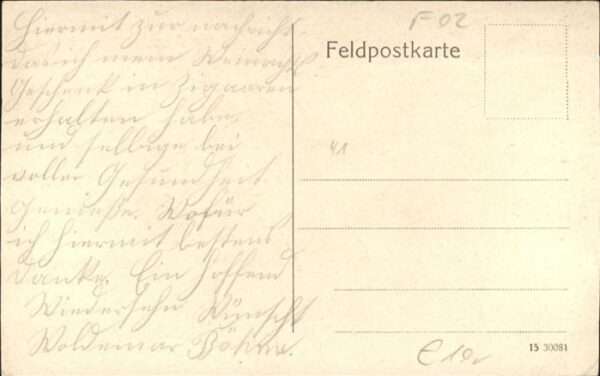 Hiermit zur nachricht
das ich mein Weinachts
Geschenk in Zigaaren
erhalten habe,
und selbige bei
voller Gesundheit
Genieße. Wofür
ich hiermit bestens
danke. Ein hoffend
Wiedersehn Wünscht
Woldemar Böhme.
F 02
Feldpostkarte
41
€ 10,-
15 30081